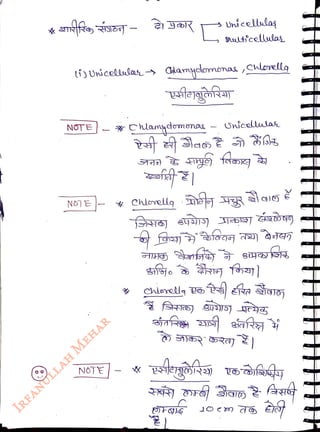 * शारीरिक संगठन - दो प्रकार → Unicellular
→ Multicellular
(i) Unicellular → Chlamydomonas, Chlorella
एसीटाबुलेरिया
NOTE - * Chlamydomonas - Unicellular
ऐसी हरी शैवाल है जो लैंगिक
जनन के सम्पूर्ण विकास को
दर्शाती है।
NOTE - * Chlorella प्रोटीन प्रचुर शैवाल है
जिसका उपयोग प्रकाश संश्लेषण
की क्रिया में केल्विन तथा बेनसन
नामक वैज्ञानिकों ने
के दौरान किया।
* Chlorella एक ऐसी हरित शैवाल
है जिसका उपयोग प्रत्येक
अंतरिक्ष यात्री अंतरिक्ष में
ले जाकर करता है।
NOTE - * एसीटाबुलेरिया एककोशिकीय
सबसे लम्बी शैवाल है जिसकी
लम्बाई 10 cm तक होती
है।
IRFANULLAH MEHAR